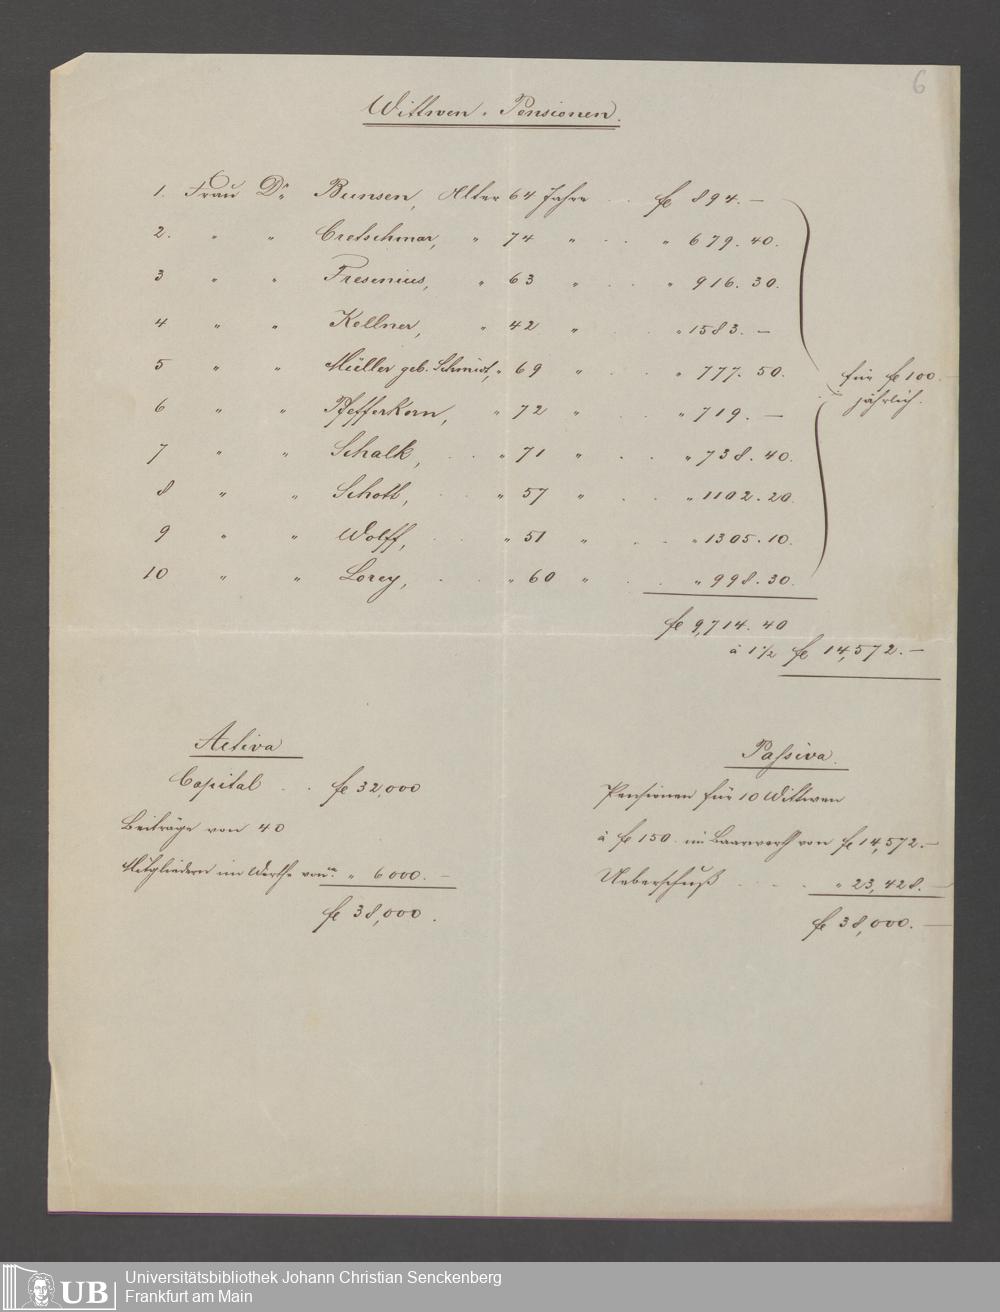 6
Wittwen-Pensionen.
1. Frau Dr. Bunsen, Alter 64 Jahre . . fl 894. —
2. " " Cretschmar, " 74 " . . " 679. 40.
3 " " Fresenius, " 63 " . . " 916. 30.
4 " " Kellner, " 42 " . . " 1583. —
5 " " Müller geb. Schmidt, " 69 " . . " 777. 50.
6 " " Pfefferkorn, " 72 " . . " 719. —
7 " " Schalk, . . " 71 " . . " 738. 40.
8 " " Schott, . . " 57 " . . " 1102. 20.
9 " " Wolff, . . " 51 " . . " 1305. 10.
10 " " Lorey, . . " 60 " . . " 998. 30.
für fl 100.
jährlich.
fl 9,714. 40
à 1 1/2 fl 14,572. —
Activa
Capital . . fl 32,000
Beiträge von 40
Mitgliedern im Werthe von " 6000. —
fl 38,000.
Passiva.
Pensionen für 10 Wittwen
à fl 150. im Baarwerth von fl 14,572. —
Ueberschuß . . . . " 23,428. —
fl 38,000. —
UB
Universitätsbibliothek Johann Christian Senckenberg
Frankfurt am Main